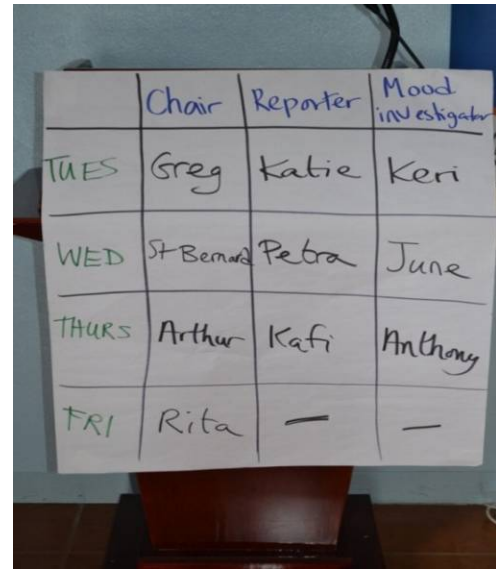 Chair Reporter Mood investigator
TUES Greg Katie Keri
WED St Bernard Petra June
THURS Arthur Kafi Anthony
FRI Rita — —